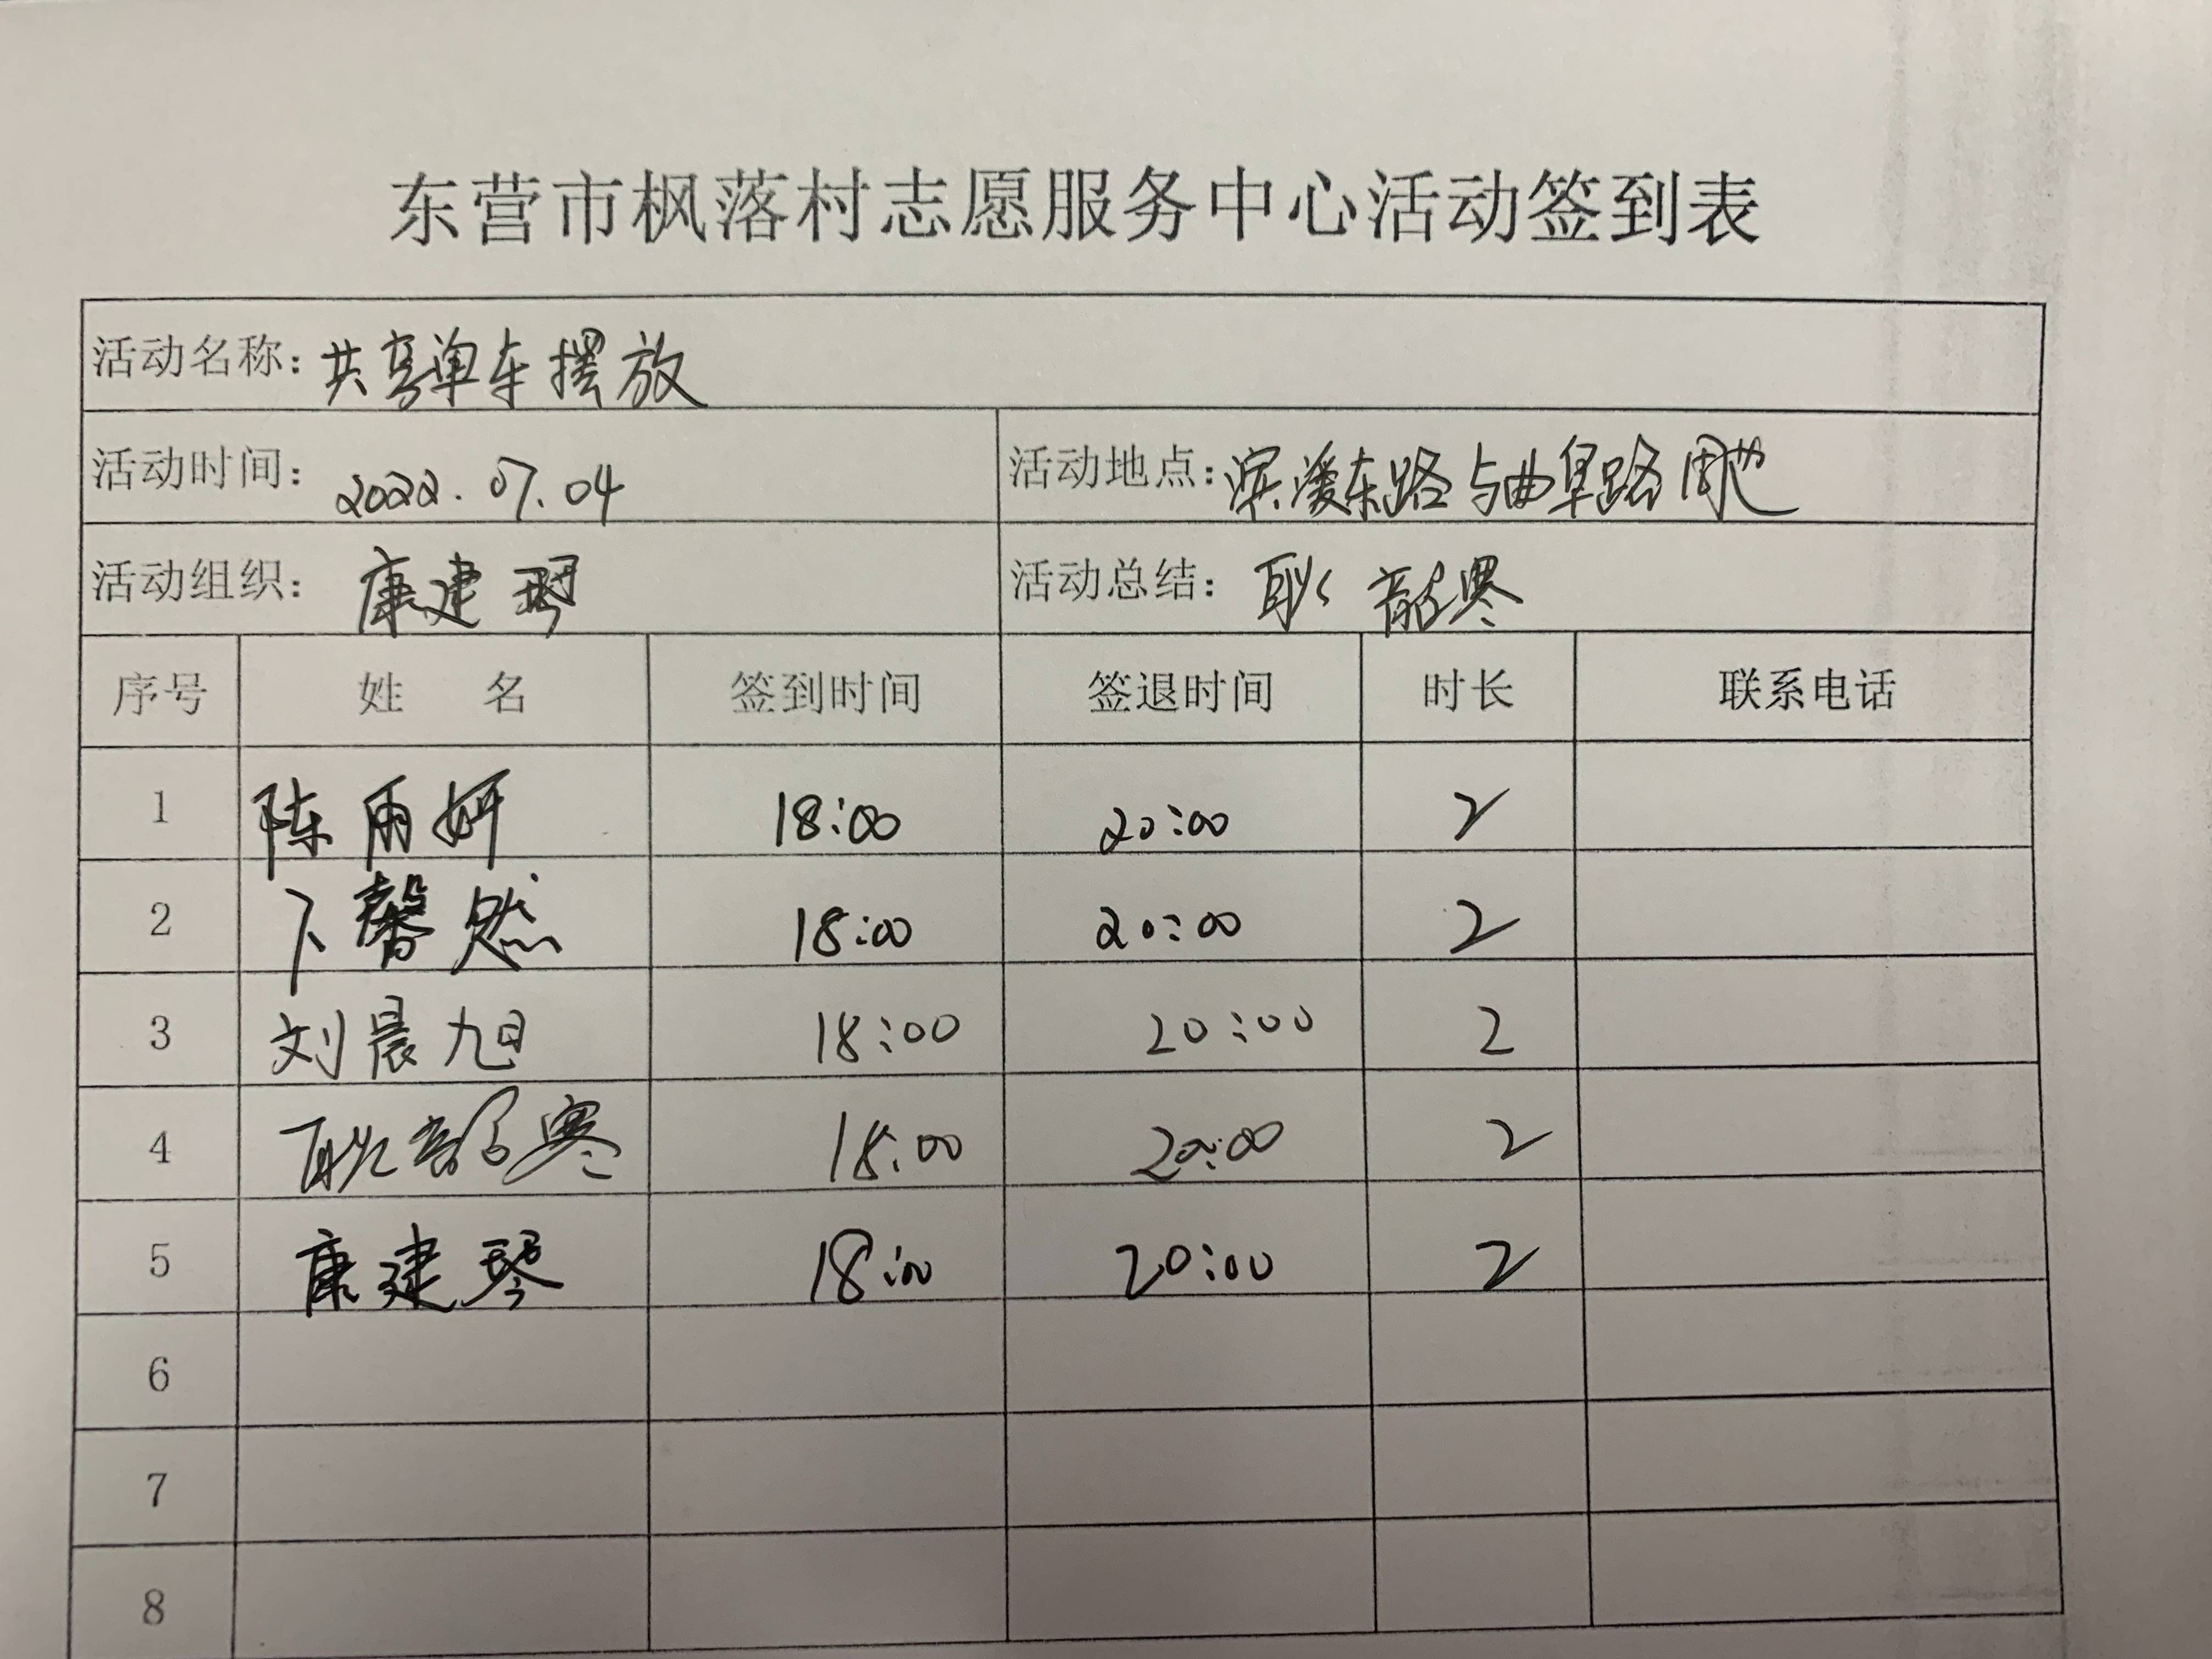 东营市枫落村志愿服务中心活动签到表
活动名称：共享单车摆放
活动时间：2022.07.04 活动地点：滨凌东路与曲阜路周边
活动组织：康建琴 活动总结：耿韶寒
序号 姓 名 签到时间 签退时间 时长 联系电话
1 陈雨妍 18:00 20:00 2
2 卞馨然 18:00 20:00 2
3 刘晨旭 18:00 20:00 2
4 耿韶寒 18:00 20:00 2
5 康建琴 18:00 20:00 2
6
7
8